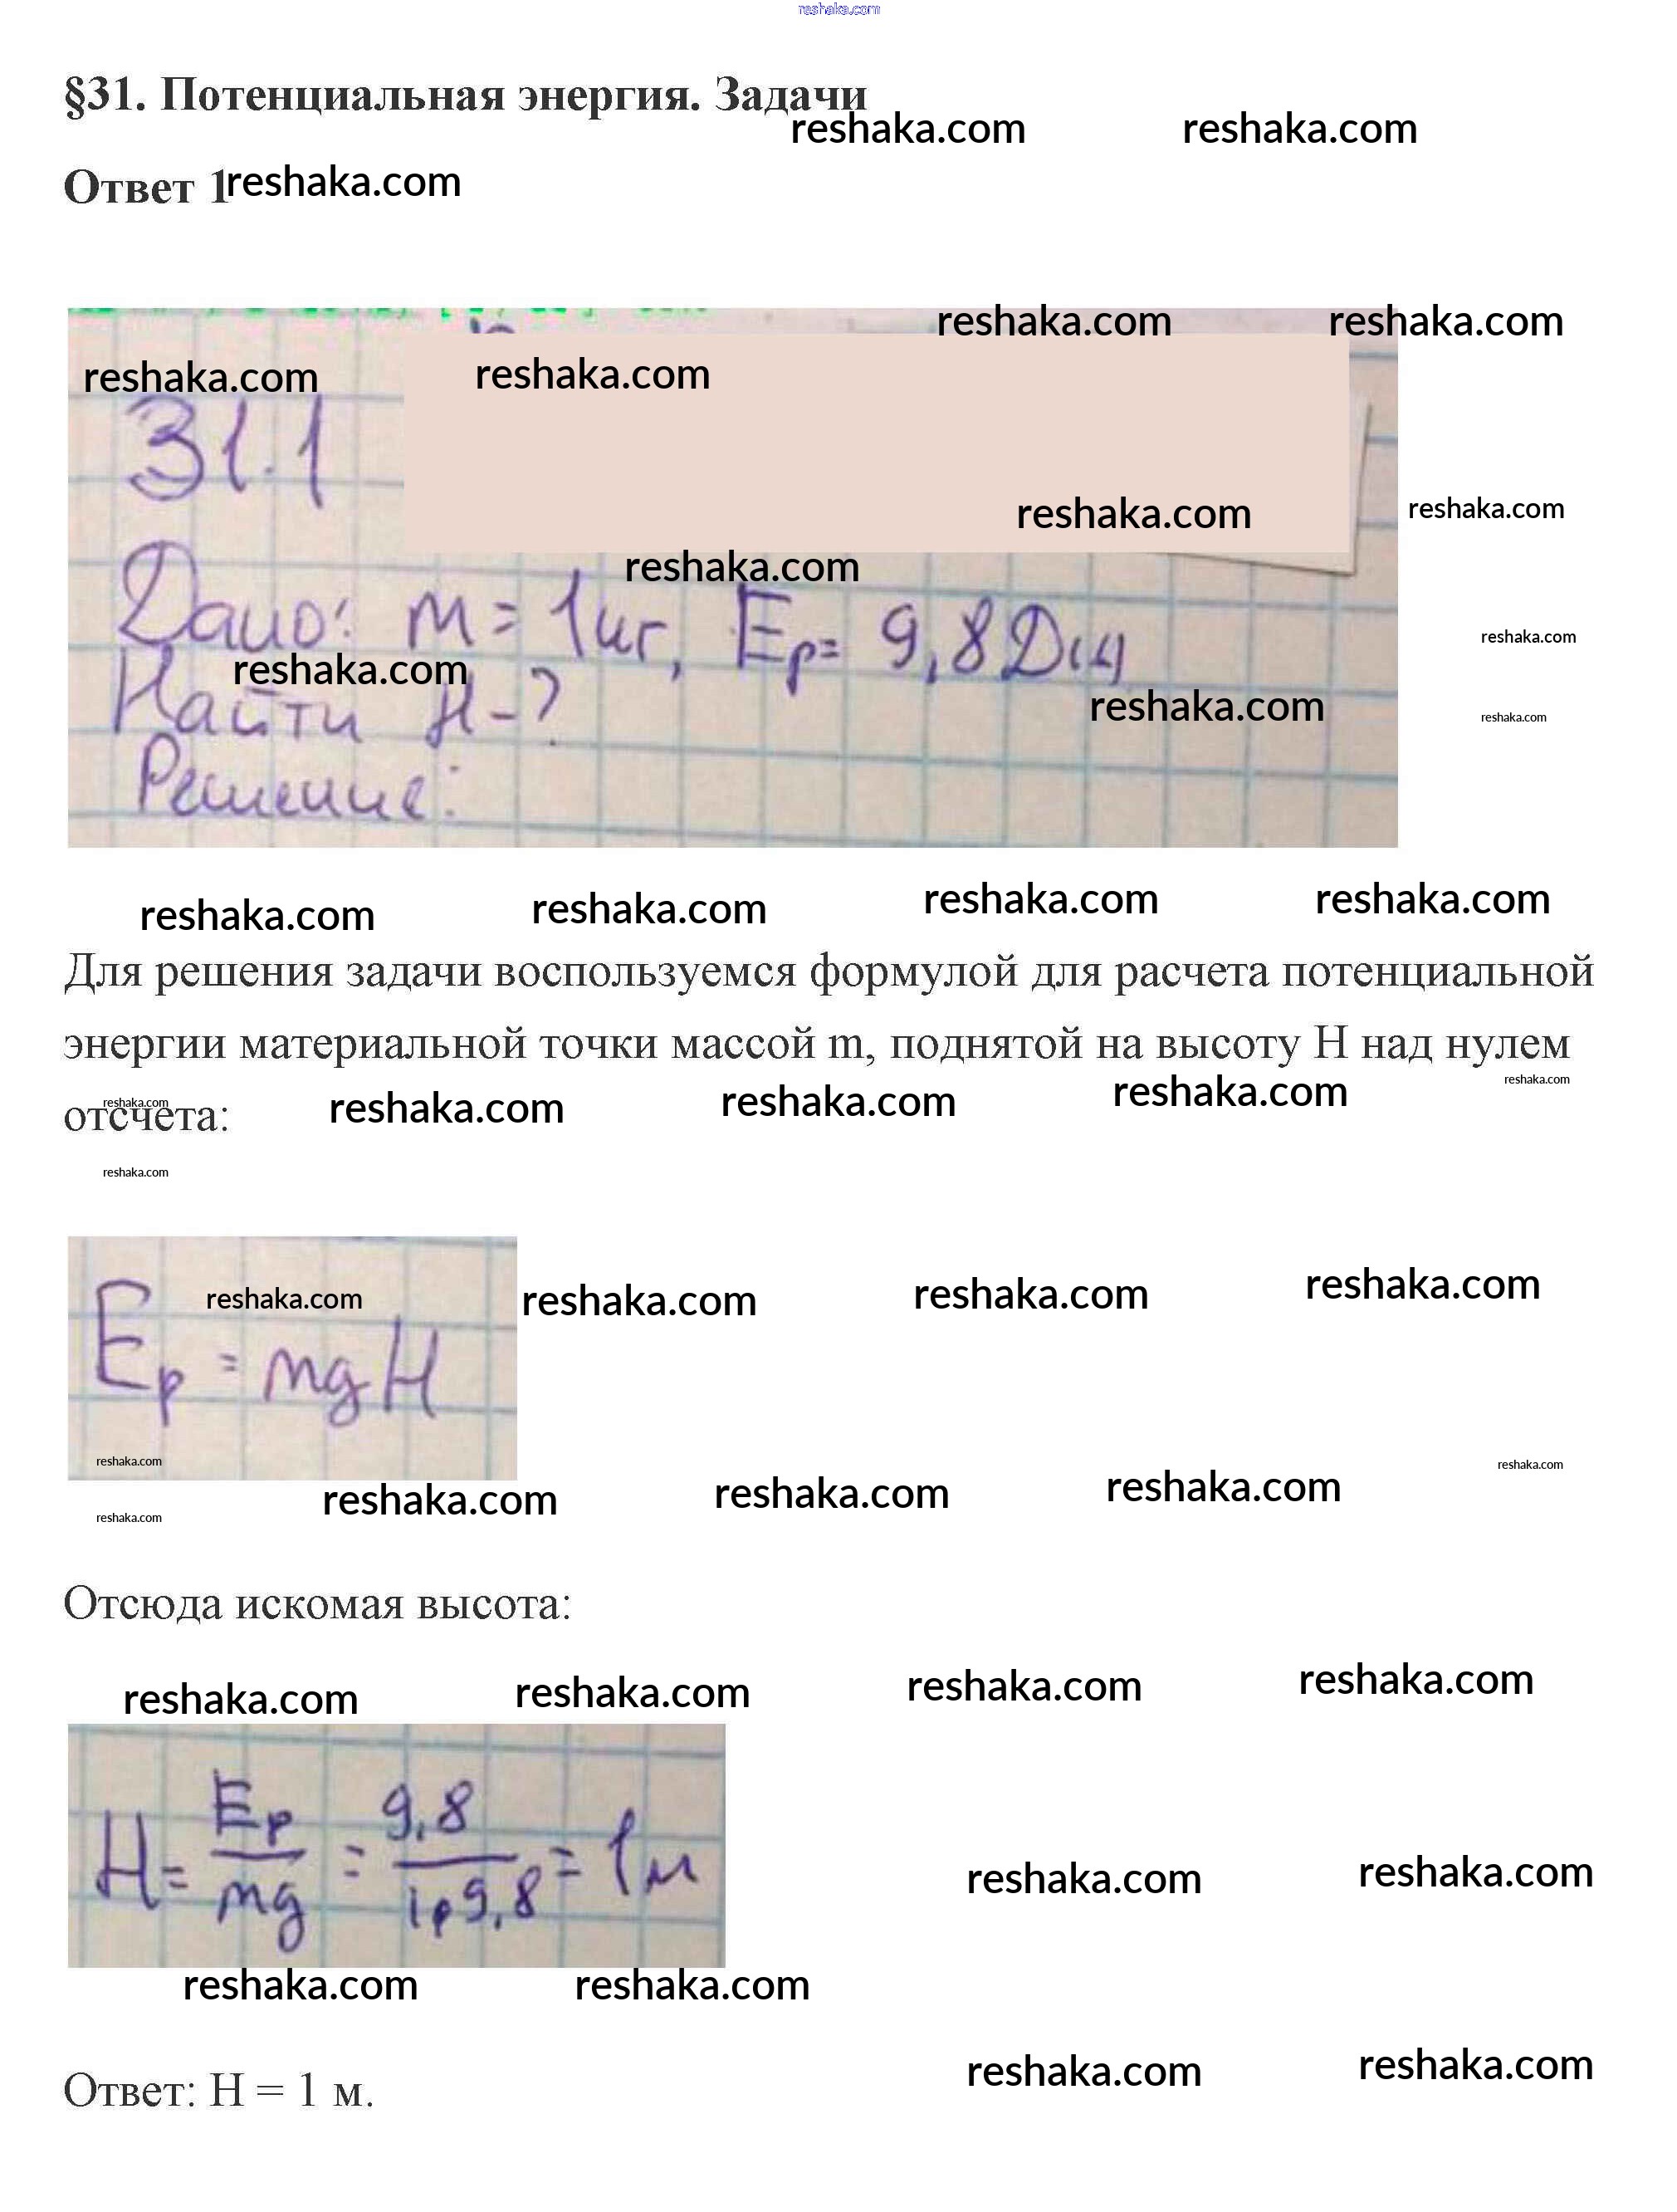 reshaka.com
§31. Потенциальная энергия. Задачи
reshaka.com reshaka.com
Ответ 1 reshaka.com
reshaka.com reshaka.com
reshaka.com reshaka.com
31.1
reshaka.com reshaka.com
reshaka.com
Дано: m = 1 кг, Ep = 9,8 Дж
reshaka.com
reshaka.com
Найти H - ?
reshaka.com reshaka.com
Решение:
reshaka.com reshaka.com reshaka.com reshaka.com
Для решения задачи воспользуемся формулой для расчета потенциальной
энергии материальной точки массой m, поднятой на высоту H над нулем
reshaka.com
отсчета:
reshaka.com reshaka.com reshaka.com reshaka.com
reshaka.com
reshaka.com reshaka.com reshaka.com reshaka.com
Ep = mgH
reshaka.com reshaka.com
reshaka.com reshaka.com reshaka.com
reshaka.com
Отсюда искомая высота:
reshaka.com reshaka.com reshaka.com reshaka.com
H = Ep/mg = 9,8/1·9,8 = 1 м
reshaka.com reshaka.com
reshaka.com reshaka.com
Ответ: H = 1 м.
reshaka.com reshaka.com